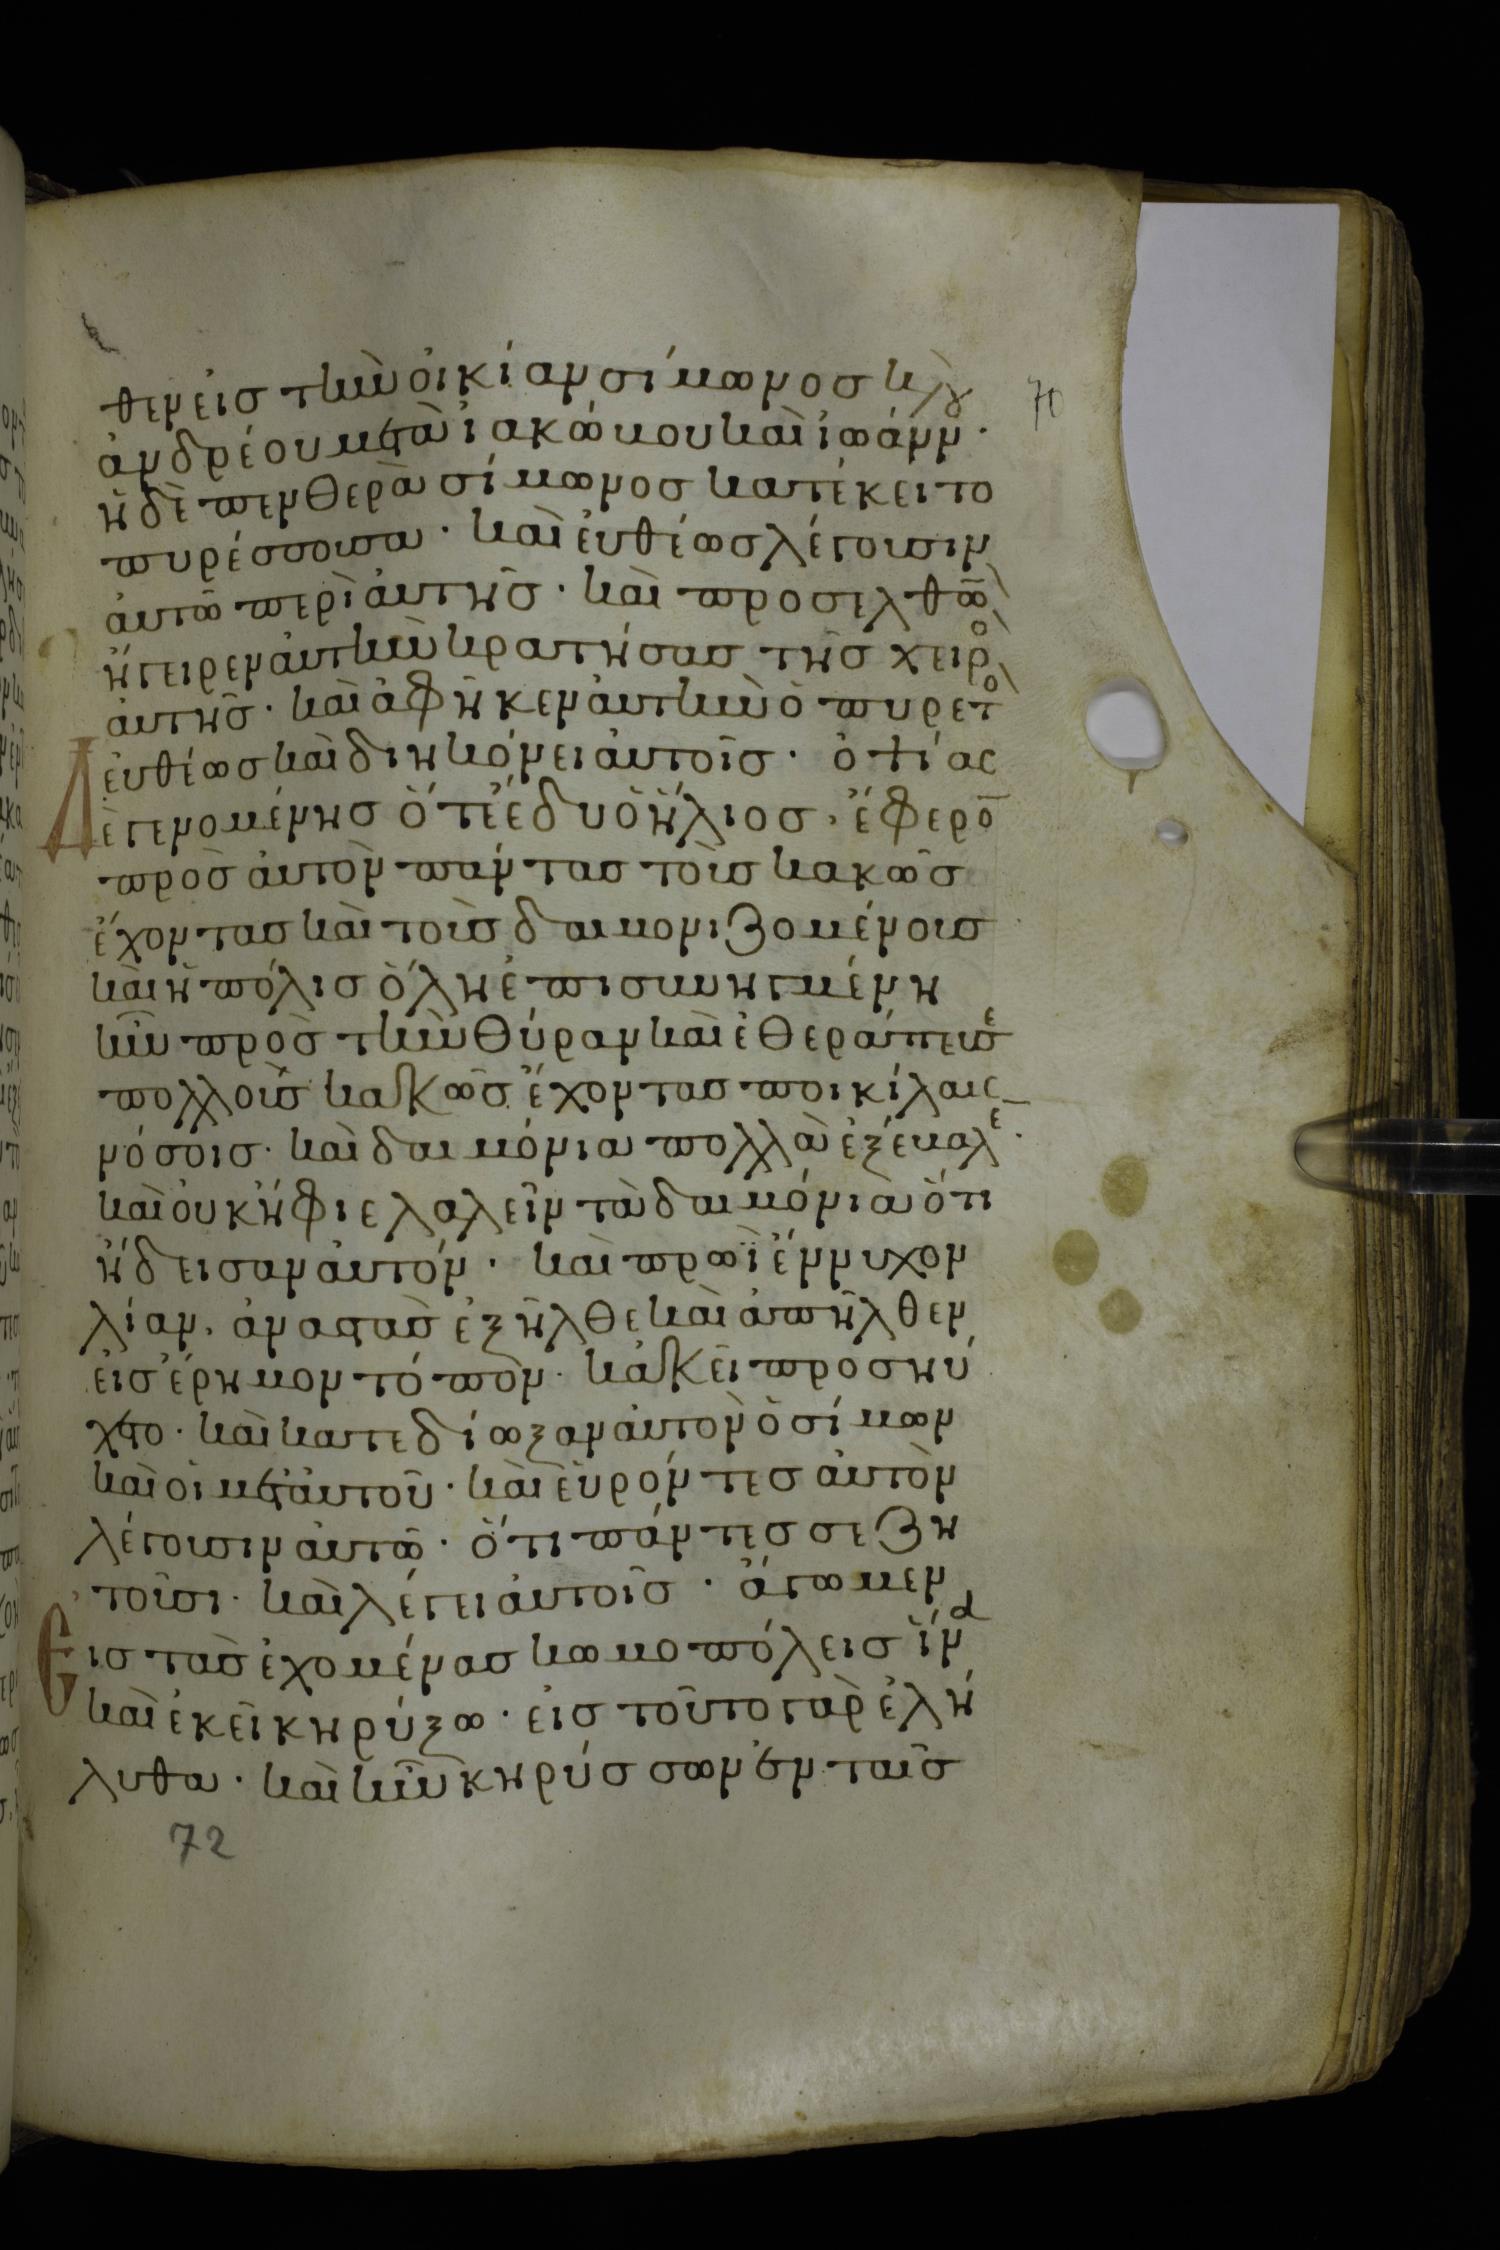 θεν εἰς τὴν οἰκίαν σίμωνος κ(αὶ)
70
ἀνδρέου μετὰ ἰακώβου καὶ ἰωάνν·
ἡ δὲ πενθερὰ σίμωνος κατέκειτο
πυρέσσουσα· καὶ εὐθέως λέγουσιν
αὐτῶ περὶ αὐτῆς· καὶ προσελθὼ
ἤγειρεν αὐτὴν κρατήσας τῆς χειρο
αὐτῆς· καὶ ἀφῆκεν αὐτὴν ὁ πυρετο
εὐθέως καὶ διηκόνει αὐτοῖς· ὀψίας
Δὲ γενομένης ὅτε ἔδυ ὁ ἥλιος· ἔφερο
πρὸς αὐτὸν πάντας τοὺς κακῶς
ἔχοντας καὶ τοὺς δαιμονιζομένους
καὶ ἡ πόλις ὅλη ἐπισυνηγμένη
ἦν πρὸς τὴν θύραν καὶ ἐθεράπευσε
πολλοὺς κακῶς ἔχοντας ποικίλαις
νόσοις· καὶ δαιμόνια πολλὰ ἐξέβαλε·
καὶ οὐκ ἤφιε λαλεῖν τὰ δαιμόνια ὅτι
ἤδεισαν αὐτόν· καὶ πρωῒ ἔννυχον
λίαν· ἀναστὰς ἐξῆλθε καὶ ἀπῆλθεν
εἰς ἔρημον τόπον· κἀκεῖ προσηύ
χετο· καὶ κατεδίωξαν αὐτὸν ὁ σίμων
καὶ οἱ μετ' αὐτοῦ· καὶ εὑρόντες αὐτὸν
λέγουσιν αὐτῶ· ὅτι πάντες σε ζη
τοῦσι· καὶ λέγει αὐτοῖς· ἄγωμεν
Εἰς τὰς ἐχομένας κωμοπόλεις ἵνα
καὶ ἐκεῖ κηρύξω· εἰς τοῦτο γὰρ ἐλή
λυθα· καὶ ἦν κηρύσσων ἐν ταῖς
72